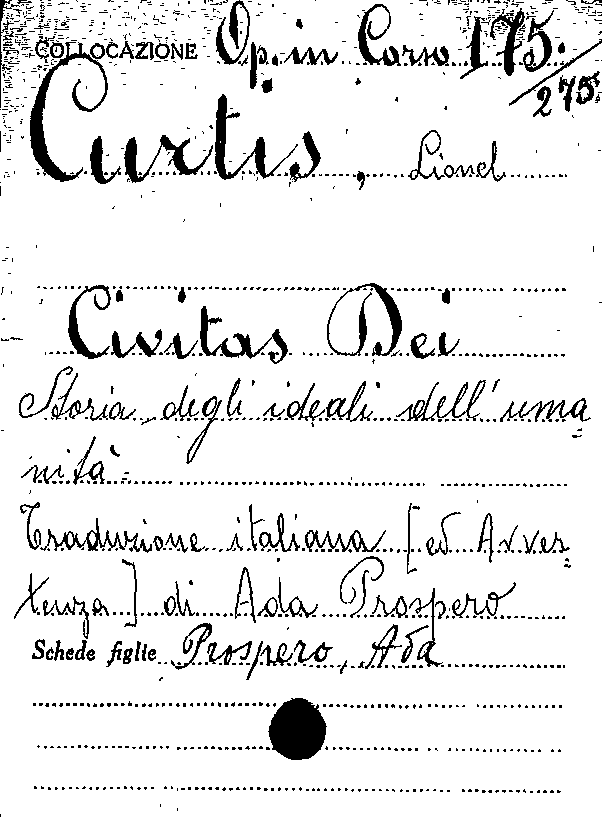 COLLOCAZIONE Op. in Corso 175./275.
Curtis, Lionel
Civitas Dei
Storia degli ideali dell'uma=
nità-
Traduzione italiana [ed Avver=
tenza] di Ada Prospero
Schede figlie Prospero, Ada